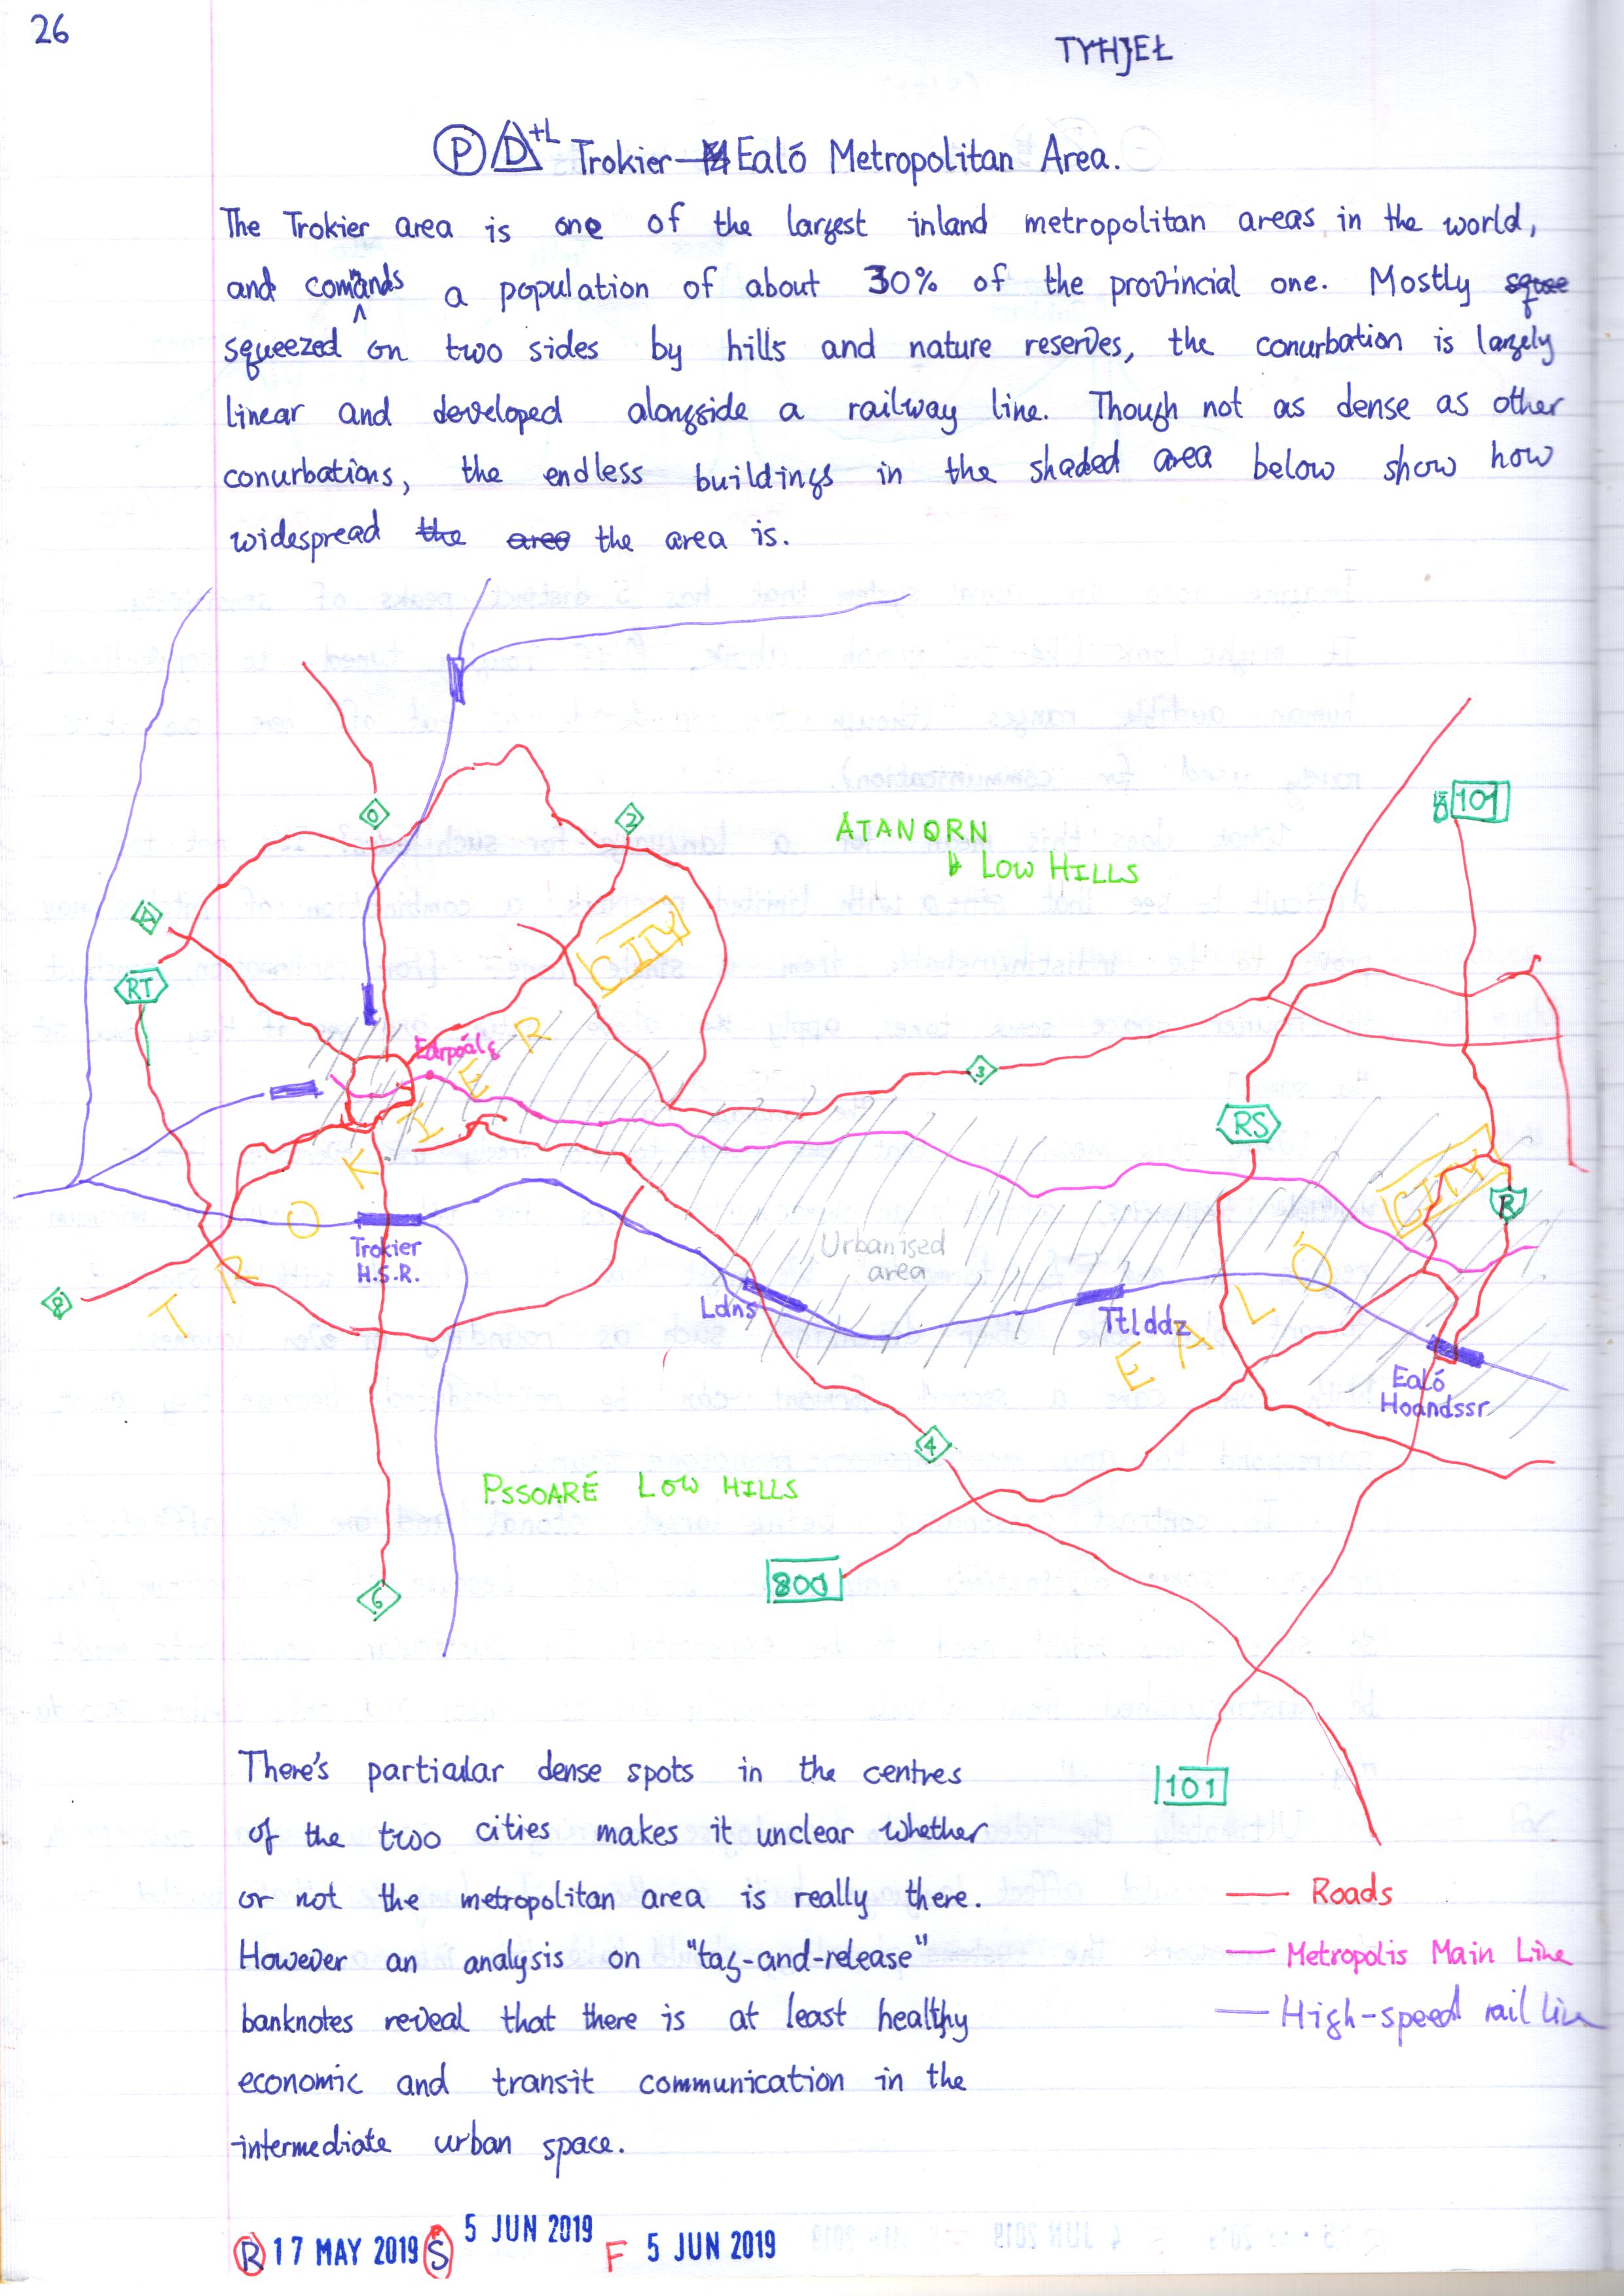 26
TYHJEŁ
P D +L Trokier-Ealó Metropolitan Area.
The Trokier area is one of the largest inland metropolitan areas in the world,
and commands a population of about 30% of the provincial one. Mostly
squeezed on two sides by hills and nature reserves, the conurbation is largely
linear and developed alongside a railway line. Though not as dense as other
conurbations, the endless buildings in the shaded area below show how
widespread the area is.
0
2
ATANORN
LOW HILLS
101
CITY
RT
Earpoálg
3
RS
CITY
R
TROKIER
Trokier
H.S.R.
Urbanised
area
8
Ldns
Ttlddz
EALÓ
Ealó
Hoandssr
4
PSSOARÉ LOW HILLS
6
800
101
There's particular dense spots in the centres
of the two cities makes it unclear whether
or not the metropolitan area is really there.
However an analysis on "tag-and-release"
banknotes reveal that there is at least healthy
economic and transit communication in the
intermediate urban space.
Roads
Metropolis Main Line
High-speed rail line
R 17 MAY 2019 S 5 JUN 2019 F 5 JUN 2019